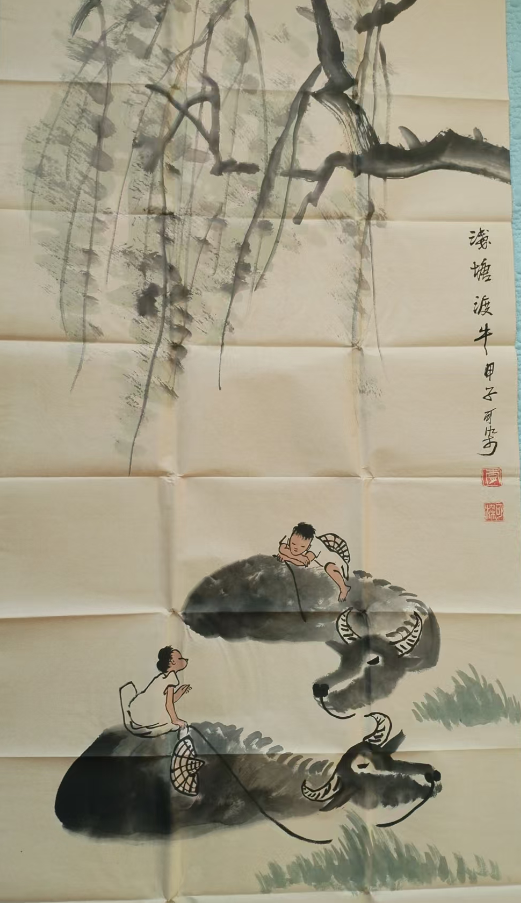 淺塘渡牛甲子可染